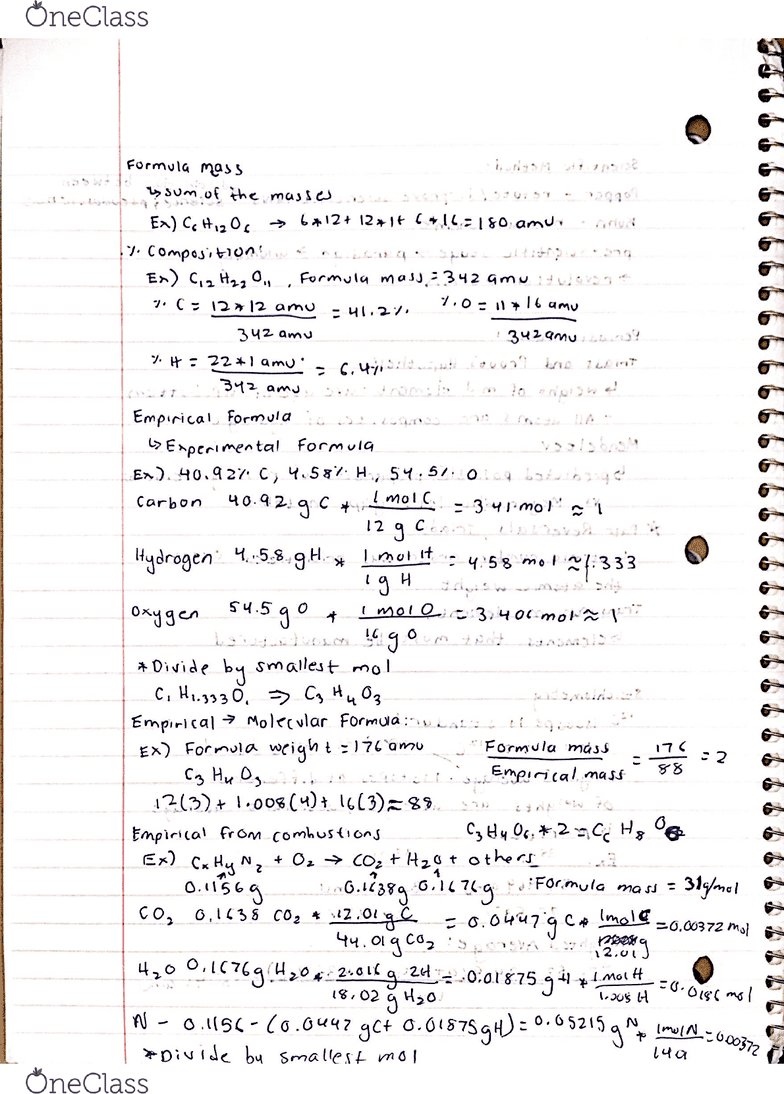 OneClass
Formula mass
↳ sum of the masses
Ex) C6H12O6 → 6*12+12*1+6*16=180 amu
% Composition:
Ex) C12H22O11, Formula mass = 342 amu
% C = 12*12 amu / 342 amu = 41.2% % O = 11*16 amu / 342 amu
% H = 22*1 amu / 342 amu = 6.4%
Empirical Formula
↳ Experimental Formula
Ex) 40.92% C, 4.58% H, 54.5% O
Carbon 40.92 g C * 1 mol C / 12 g C = 3.41 mol ≈ 1
Hydrogen 4.58 g H * 1 mol H / 1 g H = 4.58 mol ≈ 1.333
Oxygen 54.5 g O * 1 mol O / 16 g O = 3.406 mol ≈ 1
*Divide by smallest mol
C1 H1.333 O1 ⇒ C3 H4 O3
Empirical → Molecular Formula:
Ex) Formula weight = 176 amu Formula mass / Empirical mass = 176 / 88 = 2
C3 H4 O3
12(3) + 1.008(4) + 16(3) = 88
Empirical from combustions C3H4O6 * 2 = C6 H8 O6
Ex) CxHyNz + O2 → CO2 + H2O + others
0.1156g 0.1638g 0.1676g Formula mass = 31g/mol
CO2 0.1638 CO2 * 12.01 g C / 44.01 g CO2 = 0.0447 g C * 1 mol C / 12.01 g = 0.00372 mol
H2O 0.1676g H2O * 2.016 g 2H / 18.02 g H2O = 0.01875 g H * 1 mol H / 1.008 H = 0.0186 mol
N - 0.1156 - (0.0447 gC + 0.01875gH) = 0.05215 g N * 1 mol N / 14 g = 0.00372
*Divide by smallest mol
OneClass